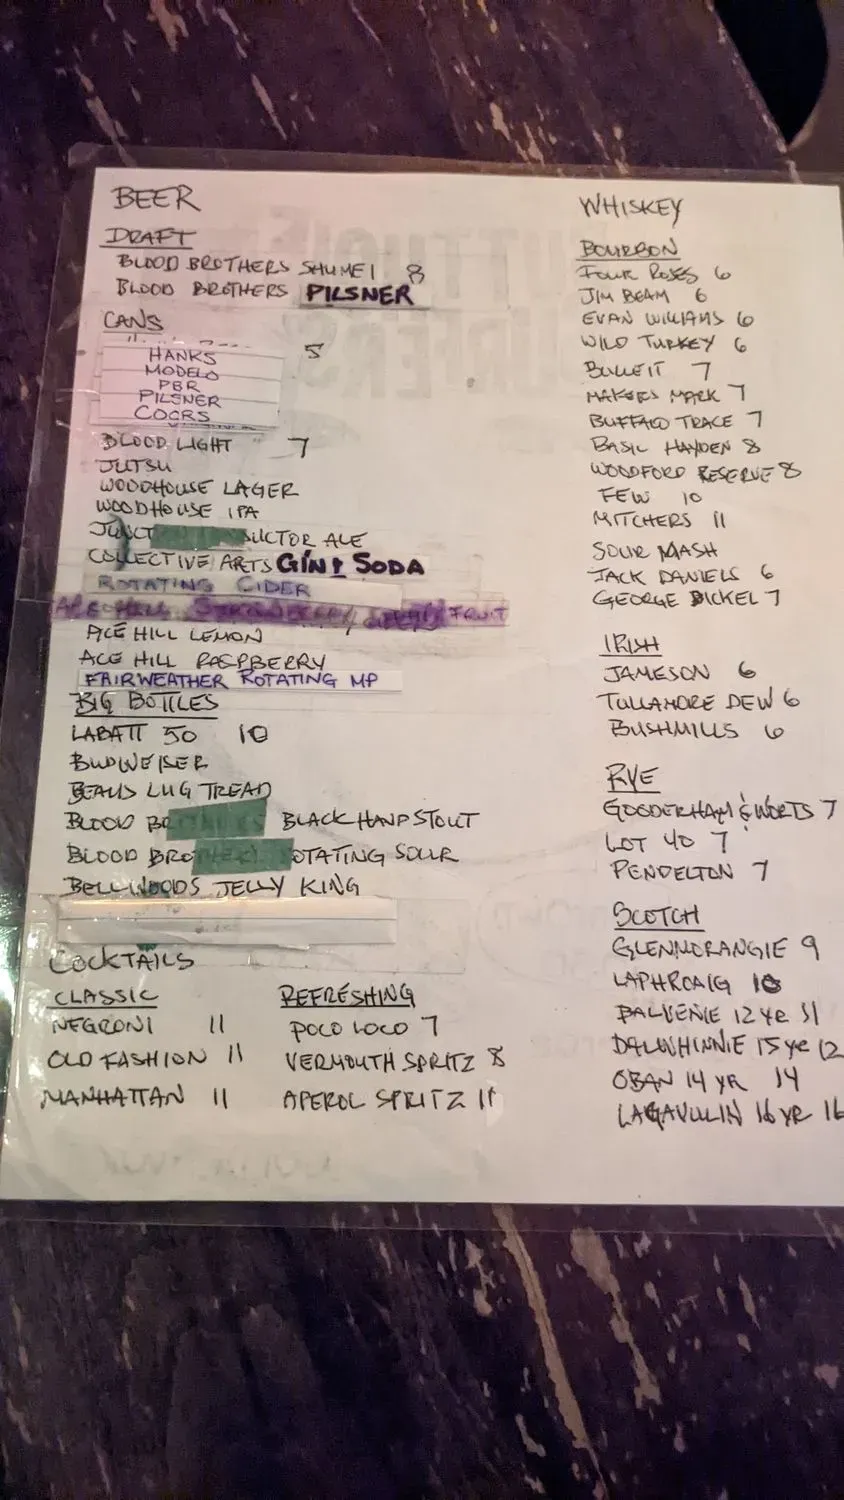 BEER
DRAFT
BLOOD BROTHERS SHUMEI 8
BLOOD BROTHERS PILSNER
CANS
HANKS 5
MODELO
PBR
PILSNER
COORS
BLOOD LIGHT 7
JUTSU
WOODHOUSE LAGER
WOODHOUSE IPA
JUNCT UCTOR ALE
COLLECTIVE ARTS GIN & SODA
ROTATING CIDER
FRUIT
ACE HILL LEMON
ACE HILL RASPBERRY
FAIRWEATHER ROTATING MP
BIG BOTTLES
LABATT 50 10
BUDWEISER
BEAUS LUG TREAD
BLOOD BROTHERS BLACK HAND STOUT
BLOOD BROTHERS ROTATING SOUR
BELLWOODS JELLY KING
COCKTAILS
CLASSIC
NEGRONI 11
OLD FASHION 11
MANHATTAN 11
REFRESHING
POCO LOCO 7
VERMOUTH SPRITZ 8
APEROL SPRITZ 11
WHISKEY
BOURBON
FOUR ROSES 6
JIM BEAM 6
EVAN WILLIAMS 6
WILD TURKEY 6
BULLEIT 7
MAKERS MARK 7
BUFFALO TRACE 7
BASIL HAYDEN 8
WOODFORD RESERVE 8
FEW 10
MITCHERS 11
SOUR MASH
JACK DANIELS 6
GEORGE DICKEL 7
IRISH
JAMESON 6
TULLAMORE DEW 6
BUSHMILLS 6
RYE
GOODERHAM & WORTS 7
LOT 40 7
PENDELTON 7
SCOTCH
GLENMORANGIE 9
LAPHROAIG 10
BALVENIE 12 YR 11
DALWHINNIE 15 YR 12
OBAN 14 YR 14
LAGAVULIN 16 YR 16